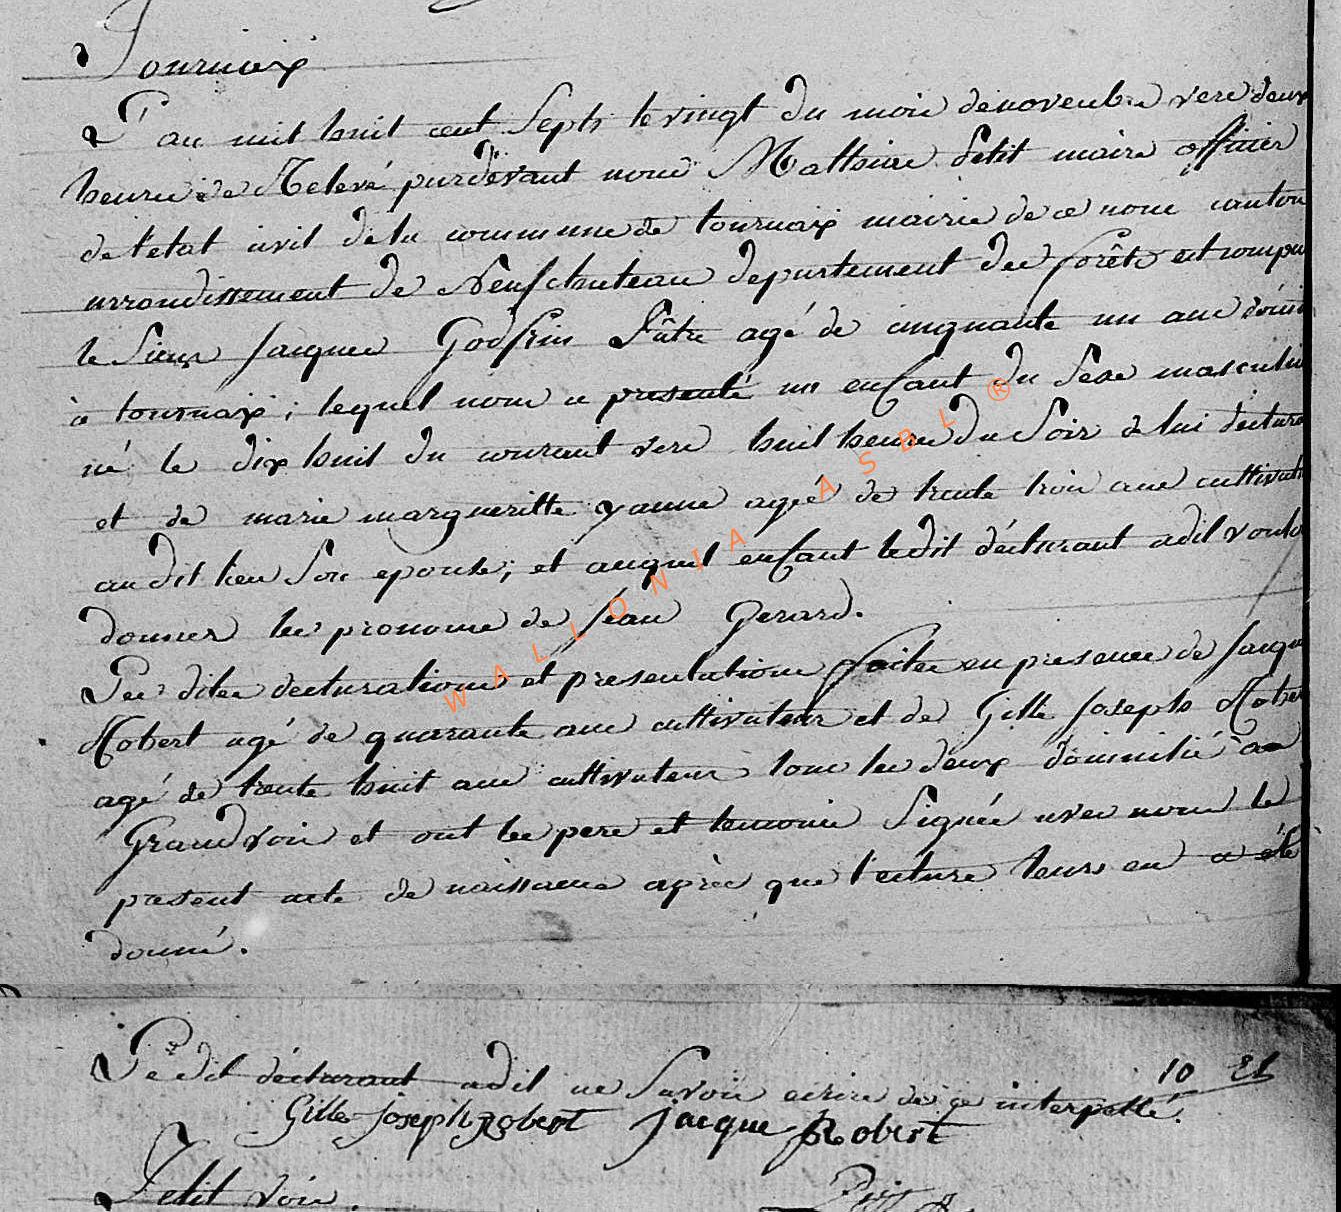 Tournaix
L'an mil huit cent Septs le vingt du mois de novembre vers deux
heures de Relevé pardevant nous Mathieu Petit maire officier
de l'etat civil de la commune de tournaix mairie de ce nom canton
arrondissement de Neufchateau departement des forêts est compa
le Sieur Jacques Godfrin Pâtre agé de cinquante un ans
à tournaix, lequel nous a presenté un enfant du Sexe masculin
né le dix huit du courant vers huit heures du Soir de lui declara
et de marie margueritte yanne agée de trente trois ans cultivat
au dit lieu Son epouse; et auquel enfant ledit déclarant a dit voulo
donner les pronoms de Jean Gerard.
Les dites declarations et presentations faites en presence de Jacqu
Robert agé de quarante ans cultivateur et de Gille Josephs Rober
agé de trente huit ans cultivateur tous les deux domicilié a
Grandvoir et ont les pere et temoins Signés avec nous le
present acte de naissance après que lecture leurs en a été
donné.
Le dit déclarant a dit ne Savoir ecrire de ce interpellé.
10 21
Gille Joseph Robert Jacque Robert
Petit voir.
WALLONIA ASBL ®